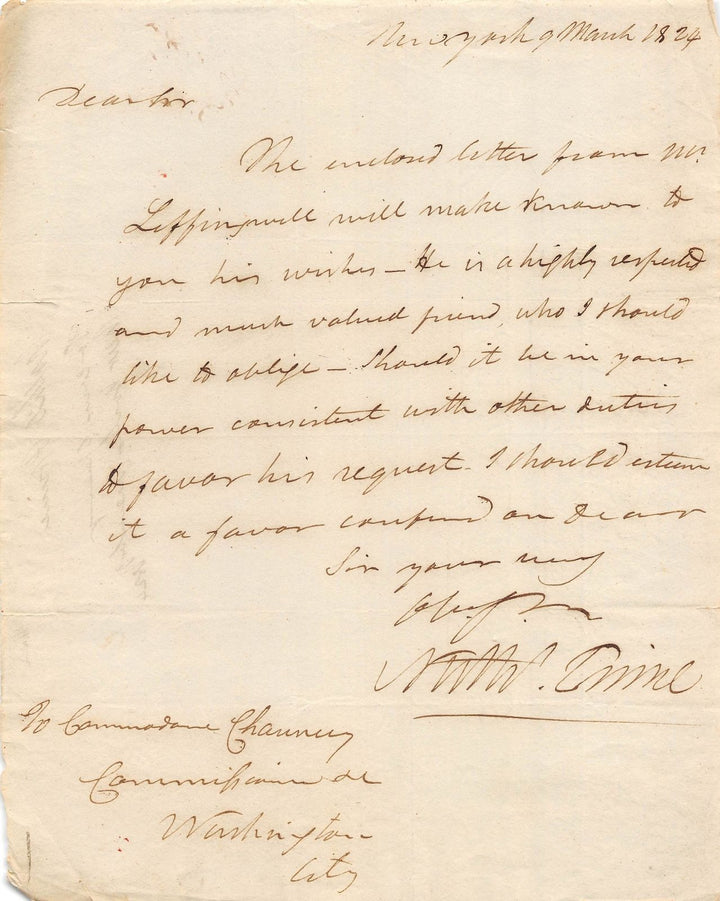 New york 9 March 1824
Dear Sir
The enclosed letter from Mr.
Leffingwell will make known to
you his wishes – He is a highly respected
and much valued friend, who I should
like to oblige – Should it be in your
power consistent with other duties
to favor his request – I should esteem
it a favor conferred on Dear
Sir your very
Nathl. Prime
To Commodore Chauncey
Commissioner &c
Washington
City